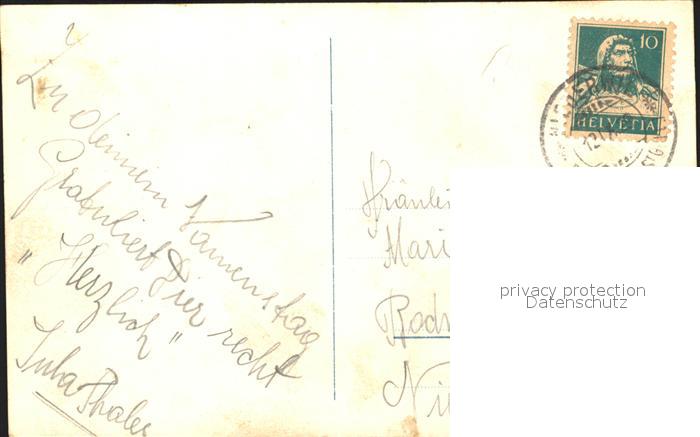 Zu deinem Namenstag
Gratuliert Dier recht
„Herzlich"
Thaler
10
HELVETIA
Fräulei
Mari
Rods
Ni
privacy protection
Datenschutz